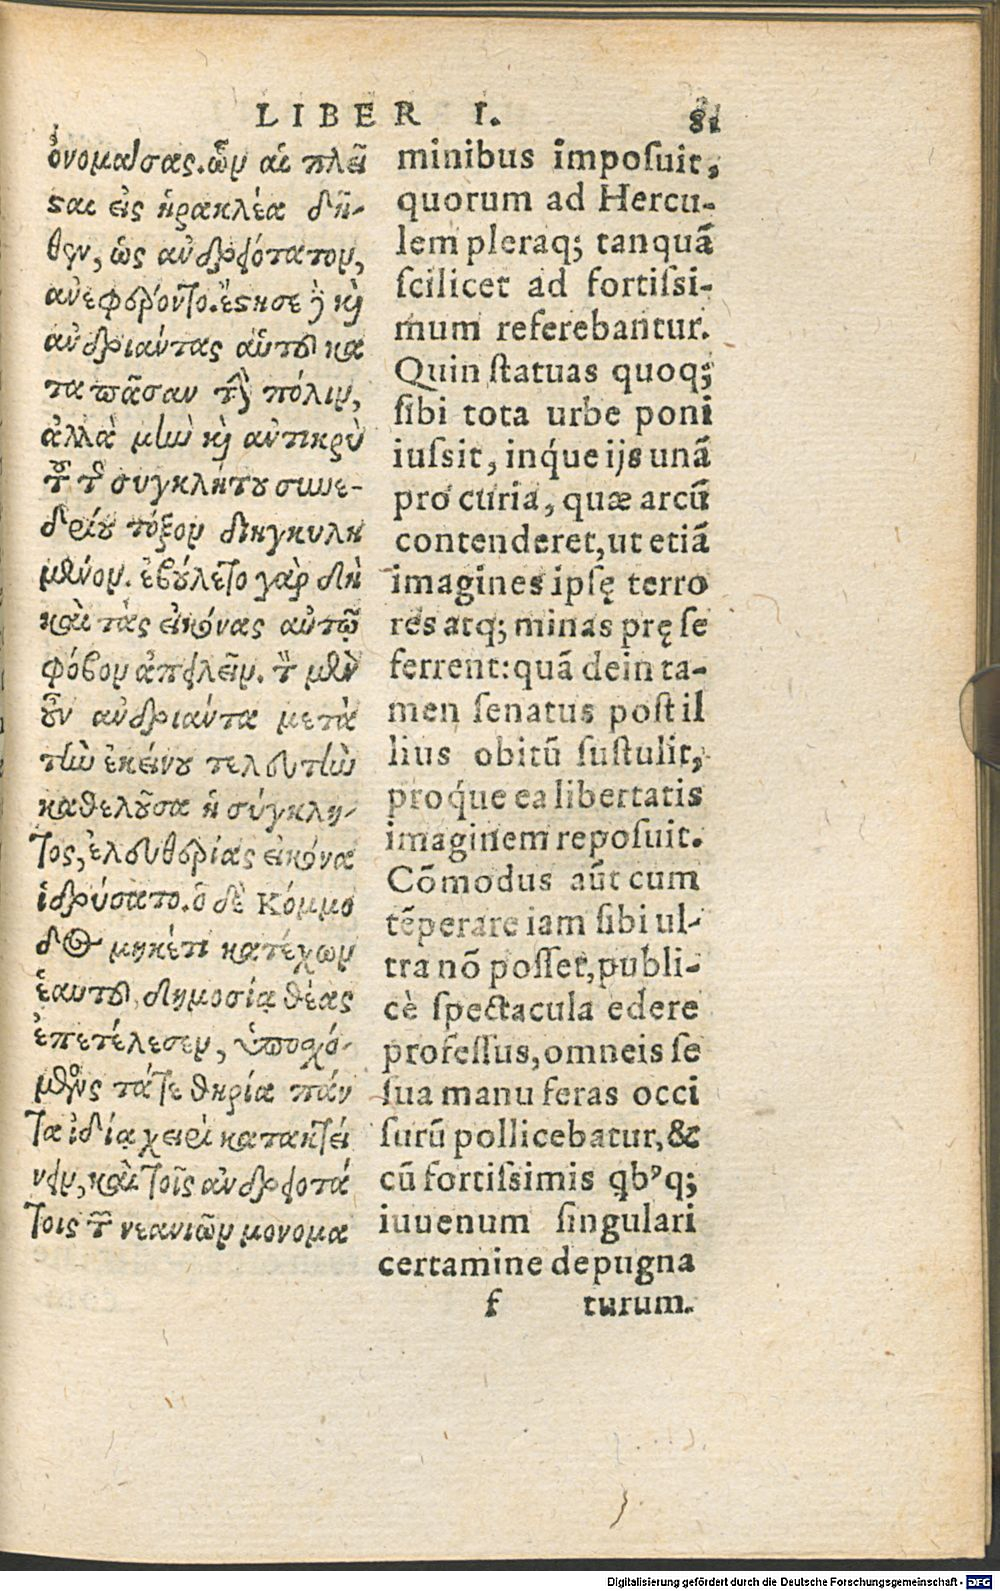 LIBER I. 81
ὀνομάσας. ὧν αἱ πλεῖ
ςαι εἰς ἡρακλέα δῆ-
θεν, ὡς ἀνδρειότατον,
ἀνεφέροντο. ἔςησε ὃ κỳ
ἀνδριάντας αὑτοῦ κα
τα πᾶσαν τὴν πόλιν,
ἀλλὰ μὴν κỳ ἀντικρὺ
τοῦ τῆς συγκλήτου συνε-
δρίου τόξον διηγκυλη
μένον. ἐβούλετο γὰρ δὴ
καὶ τὰς εἰκόνας αὐτῷ
φόβον ἀπειλεῖν. τὸν μὲν
οὖν ἀνδριάντα μετὰ
τὴν ἐκείνου τελευτὴν
καθελοῦσα ἡ σύγκλη-
τος, ἐλευθερίας εἰκόνα
ἱδρύσατο. ὁ δὲ Κόμμο
δος μηκέτι κατέχων
ἑαυτοῦ, δημοσίᾳ θέας
ἐπετέλεσεν, ὑποσχό-
μενος τά τε θηρία πάν
τα ἰδίᾳ χειρὶ κατακτεί
νειν, καὶ τοῖς ἀνδρειοτά
τοις τῶν νεανιῶν μονομα
minibus imposuit,
quorum ad Hercu-
lem pleraq; tanquā
scilicet ad fortissi-
mum referebantur.
Quin statuas quoq;
sibi tota urbe poni
iussit, inq́ue ijs unā
pro curia, quæ arcū
contenderet, ut etiā
imagines ipsę terro
res atq; minas prę se
ferrent: quā dein ta-
men senatus post il
lius obitū sustulit,
proq́ue ea libertatis
imaginem reposuit.
Cōmodus aūt cum
tēperare iam sibi ul-
tra nō posset, publi-
cè spectacula edere
professus, omneis se
sua manu feras occi
surū pollicebatur, &
cū fortissimis qb’q;
iuuenum singulari
certamine depugna
f turum.
Digitalisierung gefördert durch die Deutsche Forschungsgemeinschaft - DFG